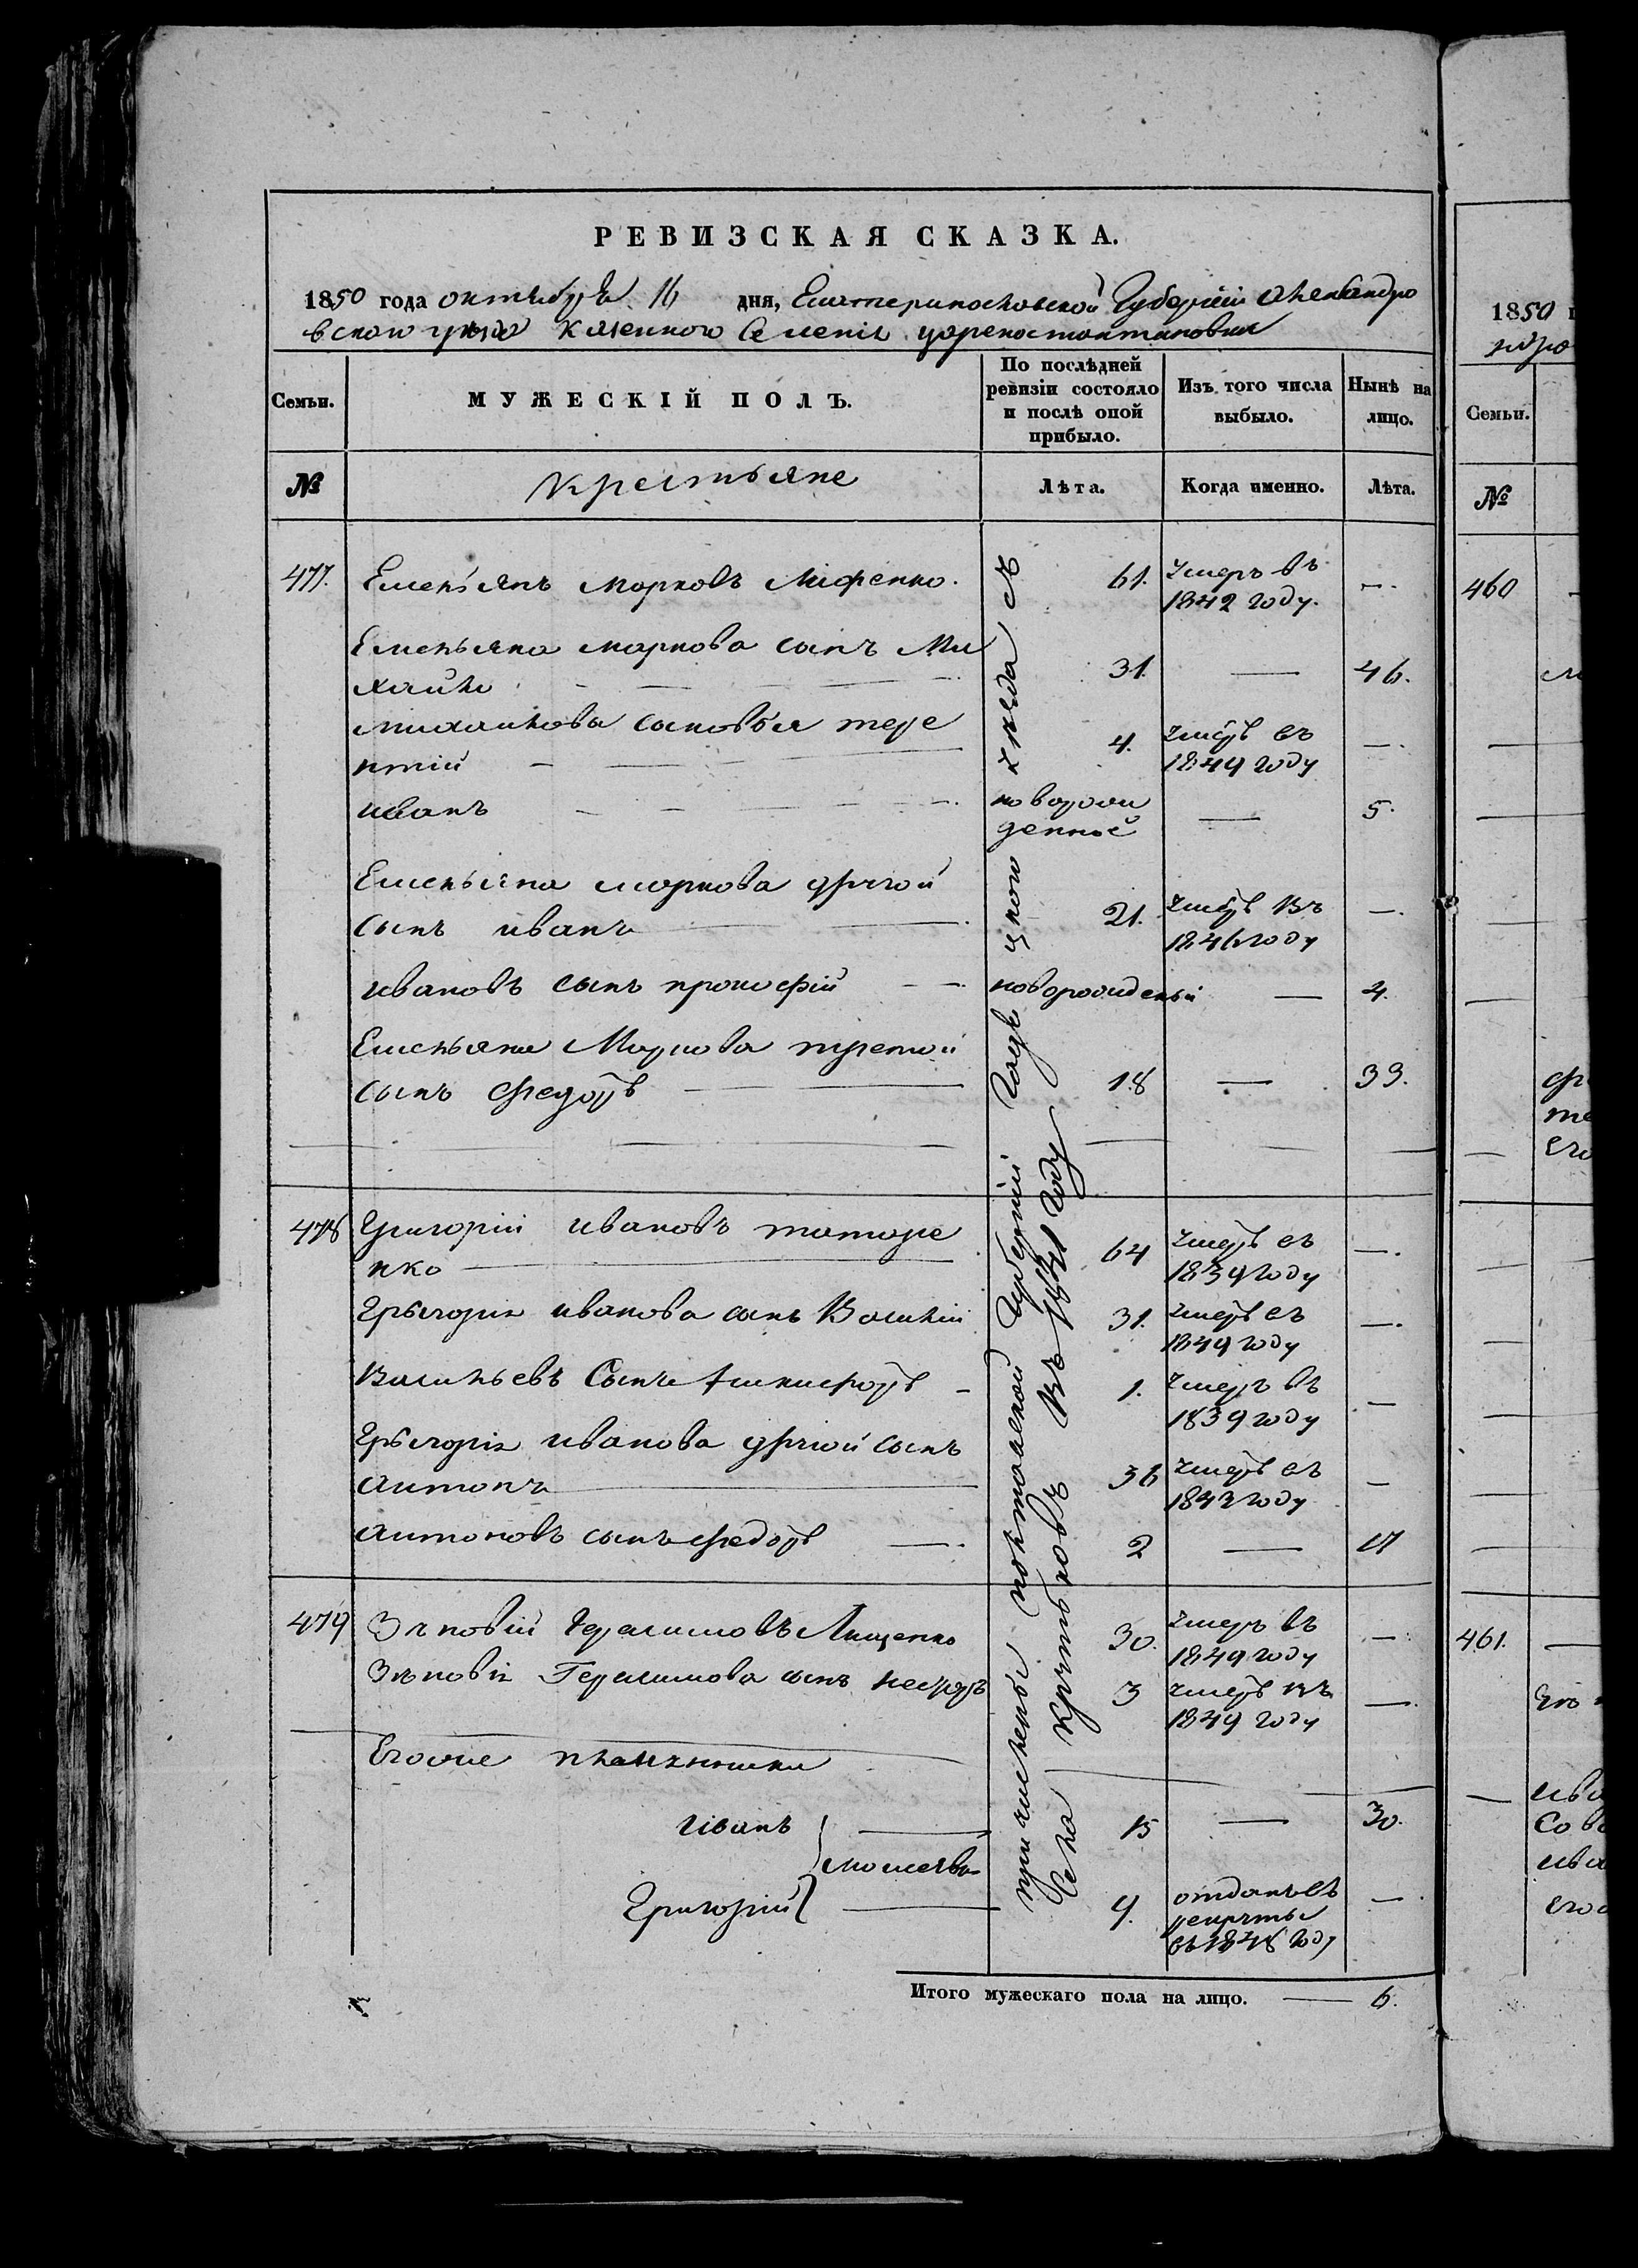 РЕВИЗСКАЯ СКАЗКА.
1850 года октября 16 дня, Екатеринославской Губерніи Александро
вскаго уезда Казенного Селенія цареконстантиновки
Семьи.
МУЖЕСКІЙ ПОЛЪ.
По послѣдней ревизіи состояло и послѣ оной прибыло.
Изъ того числа выбыло.
Нынѣ на лицо.
№
Крестьяне
Лѣта.
Когда именно.
Лѣта.
477. Емельянъ Марковъ 61. Умеръ въ
1842 году. —
Емельяна маркова сынъ Ми
хайло 31. — 46.
михайлова сыновья тере
нтій 4. Умеръ въ
1849 году —
иванъ новорож
денной — 5.
Емельяна маркова другой
сынъ иванъ 21. Умеръ въ
1846 году —
ивановъ сынъ прокофій новорожденый — 4.
Емельяна Маркова третой
сынъ федоръ 18 — 33.
478 Григорій ивановъ татаре
нко 64 Умеръ въ
1839 году —
Григорія иванова сынъ Василій 31. Умеръ въ
1849 году —
Васильевъ Сынъ 1. Умеръ въ
1839 году —
Григорія иванова другой сынъ
антонъ 36 Умеръ въ
1843 году —
антоновъ сынъ федоръ 2 — 17
479 Зѣновій Герасимовъ Лященко 30. Умеръ въ
1849 году —
Зѣновія Герасимова сынъ несторъ 3 Умеръ въ
1849 году —
Егоже племянники
Иванъ 15 — 30.
Григорій 9. отданъ въ
рекруты
въ 1848 году —
причислены полтавской Губерніи уезда съ
Села въ 1841 году
Итого мужескаго пола на лицо. — 6.
1850
Семьи.
№
460
461.